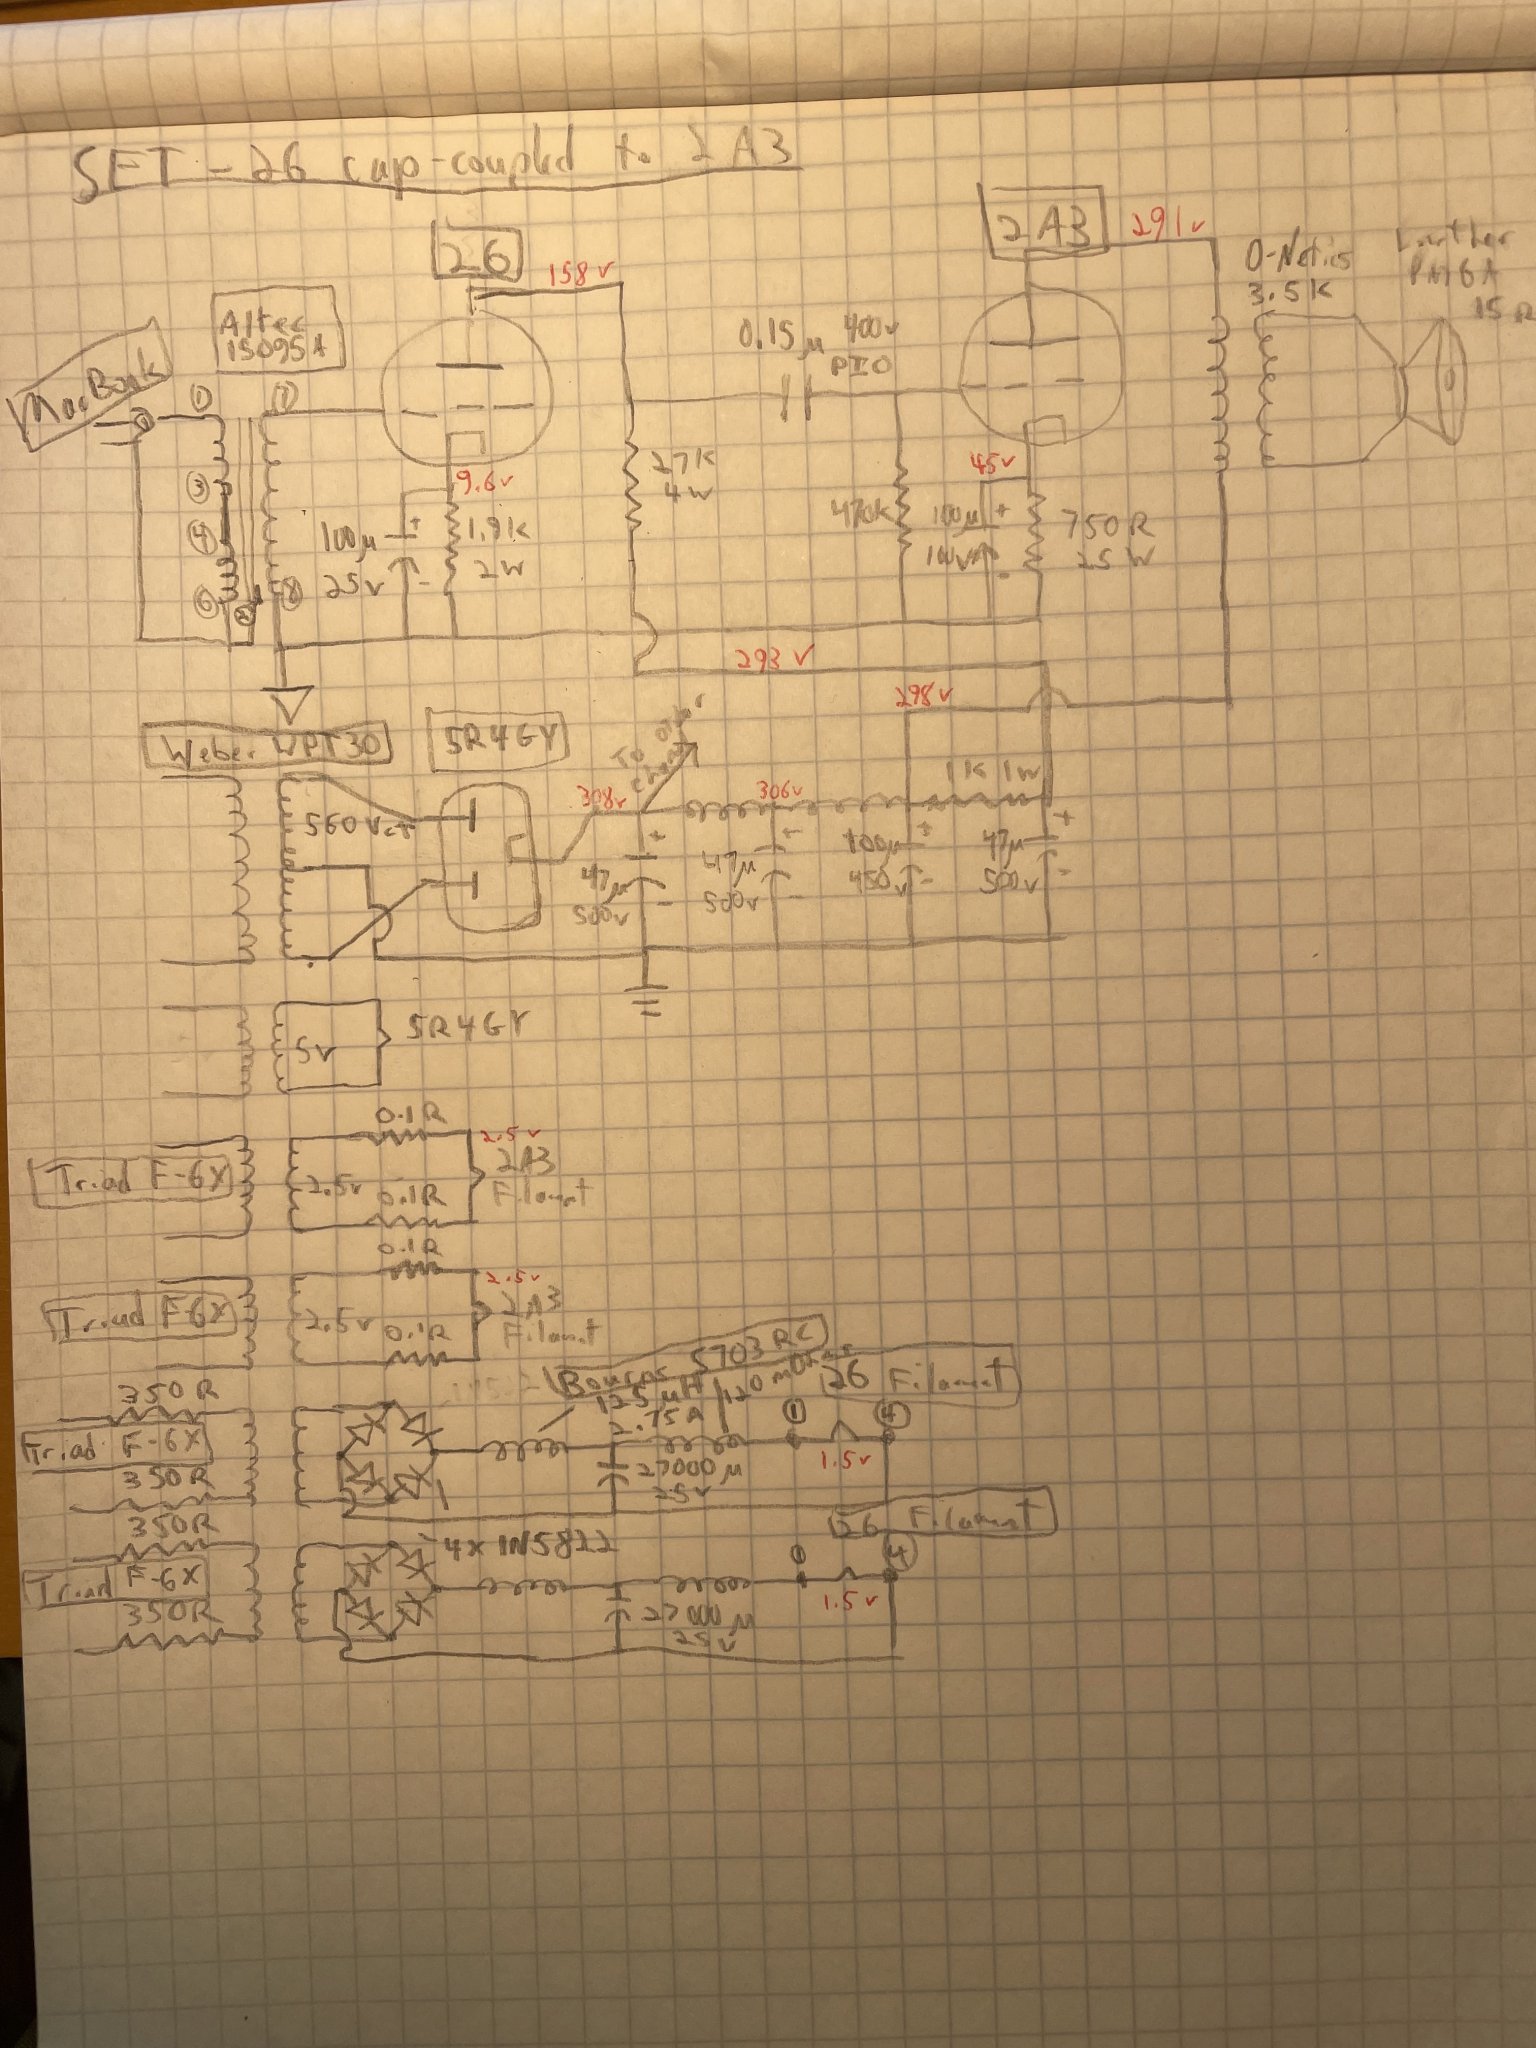 SET - 26 cap-coupled to 2A3
26
158v
2A3
291v
O-Netics
3.5K
Lowther
PM6A
15Ω
MacBook
Altec
15095A
0.15µ 400v
PIO
1
7
3
4
6
2
8
9.6v
100µ
25v
+
-
1.9K
2W
27K
4W
470K
45v
100µ
100v
+
-
750R
25W
293v
298v
Weber WPT30
5R4GY
To other
channel
560vct
308v
306v
1K 1W
+
47µ
500v
-
+
47µ
500v
-
+
100µ
450v
-
+
47µ
500v
-
5v
5R4GY
Triad F-6X
2.5v
0.1R
0.1R
2.5v
2A3
Filament
Triad F-6X
2.5v
0.1R
0.1R
2.5v
2A3
Filament
Bourns 5703 RC
125µH 120 mOhms
2.75A
26 Filament
350R
Triad F-6X
350R
27000µ
25v
1
4
1.5v
350R
Triad F-6X
350R
4x 1N5822
26 Filament
27000µ
25v
1
4
1.5v